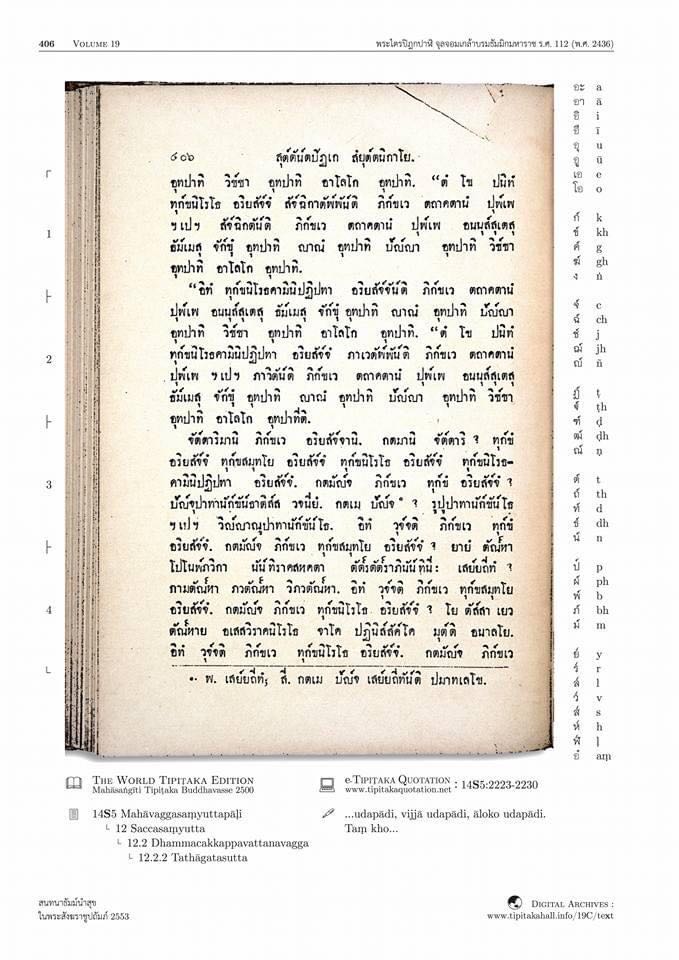 406 VOLUME 19
พระไตรปิฎกปาฬิ จุลจอมเกล้าบรมธัมมิกมหาราช ร.ศ. 112 (พ.ศ. 2436)
๔๐๖ สุต๎ตัน๎ตปิฏเก สํยุต๎ตนิกาโย.
อุทปาทิ วิช๎ชา อุทปาทิ อาโลโก อุทปาทิ. “ตํ โข ปนิทํ
ทุก๎ขนิโรโธ อริยสัจ๎จํ สัจ๎ฉิกาตัพ๎พัน๎ติ ภิก๎ขเว ตถาคตานํ ปุพ๎เพ
ฯเปฯ สัจ๎ฉิกตัน๎ติ ภิก๎ขเว ตถาคตานํ ปุพ๎เพ อนนุส๎สุเตสุ
ธัม๎เมสุ จัก๎ขุํ อุทปาทิ ญาณํ อุทปาทิ ปัญ๎ญา อุทปาทิ วิช๎ชา
อุทปาทิ อาโลโก อุทปาทิ.
“อิทํ ทุก๎ขนิโรธคามินิปฏิปทา อริยสัจ๎จัน๎ติ ภิก๎ขเว ตถาคตานํ
ปุพ๎เพ อนนุส๎สุเตสุ ธัม๎เมสุ จัก๎ขุํ อุทปาทิ ญาณํ อุทปาทิ ปัญ๎ญา
อุทปาทิ วิช๎ชา อุทปาทิ อาโลโก อุทปาทิ. “ตํ โข ปนิทํ
ทุก๎ขนิโรธคามินิปฏิปทา อริยสัจ๎จํ ภาเวตัพ๎พัน๎ติ ภิก๎ขเว ตถาคตานํ
ปุพ๎เพ ฯเปฯ ภาวิตัน๎ติ ภิก๎ขเว ตถาคตานํ ปุพ๎เพ อนนุส๎สุเตสุ
ธัม๎เมสุ จัก๎ขุํ อุทปาทิ ญาณํ อุทปาทิ ปัญ๎ญา อุทปาทิ วิช๎ชา
อุทปาทิ อาโลโก อุทปาทีติ.
จัต๎ตาริมานิ ภิก๎ขเว อริยสัจ๎จานิ. กตมานิ จัต๎ตาริ ? ทุก๎ขํ
อริยสัจ๎จํ ทุก๎ขสมุทโย อริยสัจ๎จํ ทุก๎ขนิโรโธ อริยสัจ๎จํ ทุก๎ขนิโรธ-
คามินิปฏิปทา อริยสัจ๎จํ. กตมัญ๎จ ภิก๎ขเว ทุก๎ขํ อริยสัจ๎จํ ?
ปัญ๎จุปาทานัก๎ขัน๎ธาติส๎ส วจนียํ. กตเม ปัญ๎จ ° ? รูปูปาทานัก๎ขัน๎โธ
ฯเปฯ วิญ๎ญาณูปาทานัก๎ขัน๎โธ. อิทํ วุจ๎จติ ภิก๎ขเว ทุก๎ขํ
อริยสัจ๎จํ. กตมัญ๎จ ภิก๎ขเว ทุก๎ขสมุทโย อริยสัจ๎จํ ? ยายํ ตัณ๎หา
โปโนพ๎ภวิกา นัน๎ทิราคสหคตา ตัต๎รตัต๎ราภินัน๎ทินี: เสย๎ยถีทํ ?
กามตัณ๎หา ภวตัณ๎หา วิภวตัณ๎หา. อิทํ วุจ๎จติ ภิก๎ขเว ทุก๎ขสมุทโย
อริยสัจ๎จํ. กตมัญ๎จ ภิก๎ขเว ทุก๎ขนิโรโธ อริยสัจ๎จํ ? โย ตัส๎สา เยว
ตัณ๎หาย อเสสวิราคนิโรโธ จาโค ปฏินิส๎สัค๎โค มุต๎ติ อนาลโย.
อิทํ วุจ๎จติ ภิก๎ขเว ทุก๎ขนิโรโธ อริยสัจ๎จํ. กตมัญ๎จ ภิก๎ขเว
°· พ. เสย๎ยถีทํ; สี. กตเม ปัญ๎จ เสย๎ยถีทัน๎ติ ปมาทเลโข.
1
2
3
4
อะ a
อา ā
อิ i
อี ī
อุ u
อู ū
เอ e
โอ o
ก๎ k
ข๎ kh
ค๎ g
ฆ๎ gh
ง ṅ
จ๎ c
ฉ๎ ch
ช๎ j
ฌ๎ jh
ญ๎ ñ
ฏ๎ ṭ
ฐ๎ ṭh
ฑ๎ ḍ
ฒ๎ ḍh
ณ๎ ṇ
ต๎ t
ถ๎ th
ท๎ d
ธ๎ dh
น๎ n
ป๎ p
ผ๎ ph
พ๎ b
ภ๎ bh
ม๎ m
ย๎ y
ร๎ r
ล๎ l
ว๎ v
ส๎ s
ห๎ h
ฬ๎ ḷ
อํ aṃ
THE WORLD TIPIṬAKA EDITION
Mahāsaṅgīti Tipiṭaka Buddhavasse 2500
14S5 Mahāvaggasaṃyuttapāḷi
12 Saccasaṃyutta
12.2 Dhammacakkappavattanavagga
12.2.2 Tathāgatasutta
e-TIPIṬAKA QUOTATION : 14S5:2223-2230
www.tipitakaquotation.net
...udapādi, vijjā udapādi, āloko udapādi.
Taṃ kho...
สนทนาธัมม์นำสุข
ในพระสังฆราชูปถัมภ์ 2553
DIGITAL ARCHIVES :
www.tipitakahall.info/19C/text